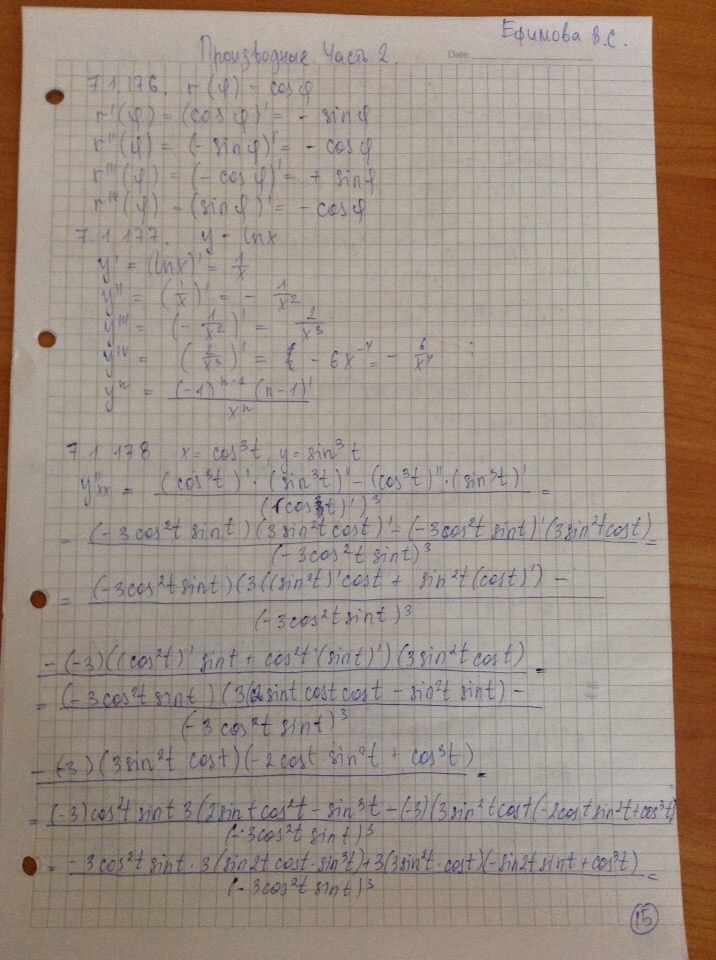 Ефимова В.С.
Производные. Часть 2.
Date
7.1.176. r(φ) = cosφ
r'(φ) = (cosφ)' = - sinφ
r''(φ) = (- sinφ)' = - cosφ
r'''(φ) = (- cosφ)' = + sinφ
r'ᵛ(φ) = (sinφ)' = - cosφ
7.1.177. y = lnx
y' = (lnx)' = 1/x
y'' = (1/x)' = - 1/x²
y''' = (- 1/x²)' = 2/x³
y'ᵛ = (2/x³)' = - 6x⁻⁴ = - 6/x⁴
yⁿ = (-1)ⁿ⁻¹ (n-1)! / xⁿ
7.1.178 x = cos³t, y = sin³t
y''xx = ((cos³t)' · (sin³t)'' - (cos³t)'' · (sin³t)') / ((cos³t)')³ =
= ((-3cos²t sint)(3sin²t cost)' - (-3cos²t sint)'(3sin²t cost)) / (-3cos²t sint)³ =
= (-3cos²t sint)(3((sin²t)'cost + sin²t(cost)') - / (-3cos²t sint)³
- (-3)((cos²t)' sint + cos²t·(sint)')(3sin²t cost) =
= (-3cos²t sint)(3(2sint cost cost - sin²t sint) - / (-3cos²t sint)³
- (-3)(3sin²t cost)(-2cost sin²t + cos³t) =
= (-3)cos²t sint 3(2sint cos²t - sin³t - (-3)(3sin²t cost(-2cost sin²t + cos³t) / (-3cos²t sint)³
= -3cos²t sint · 3(sin2t cost - sin³t) + 3(3sin²t · cost)(-sin2t sint + cos³t) / (-3cos²t sint)³ =
15